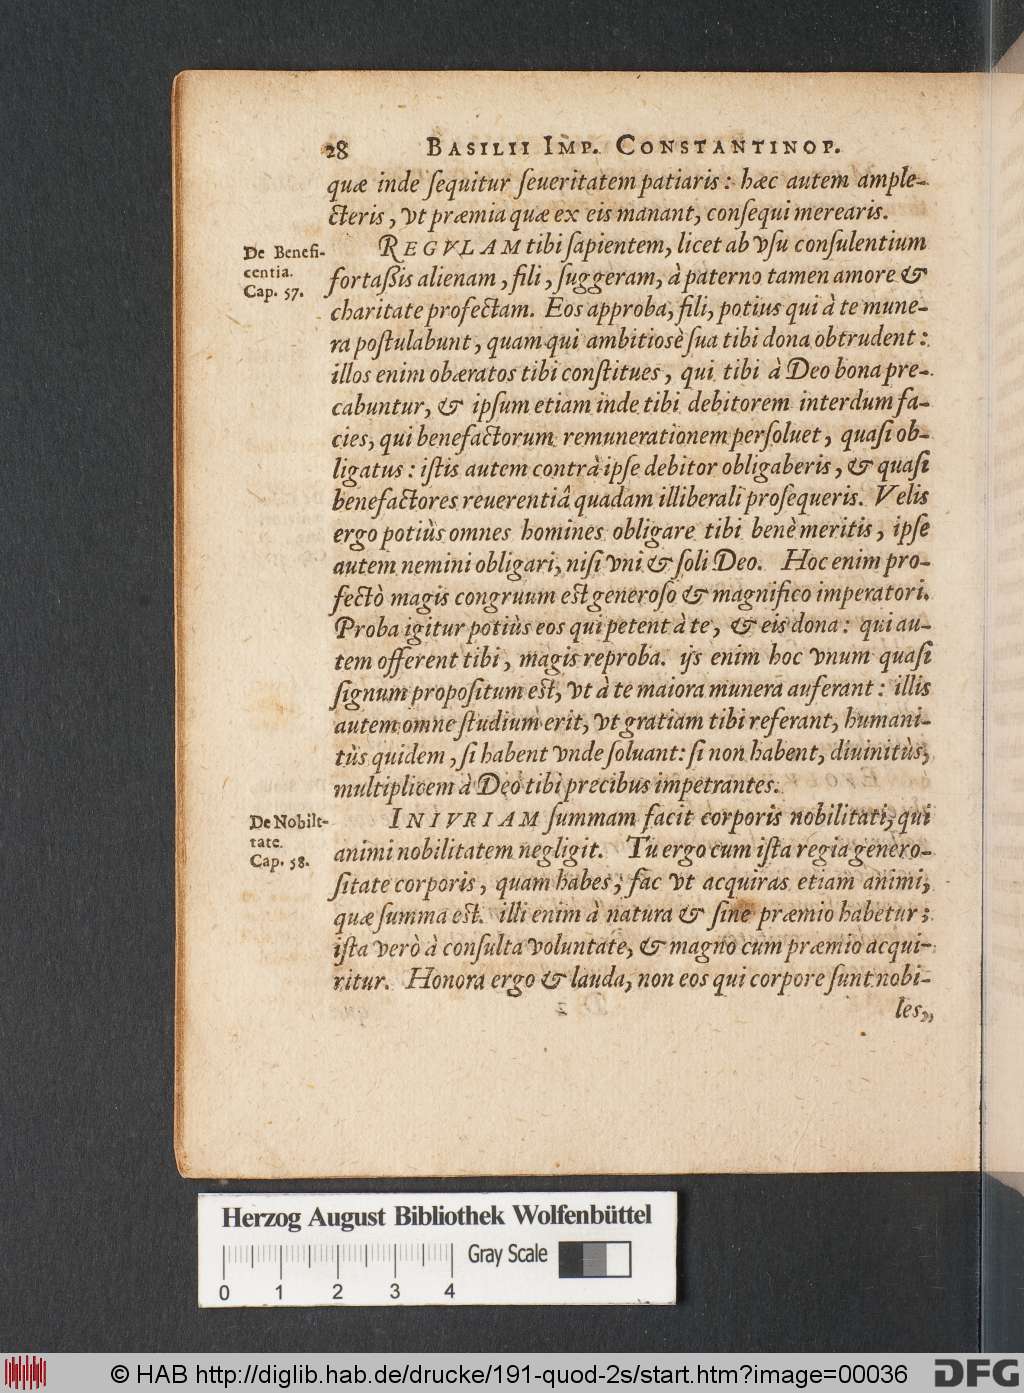 28 BASILII IMP. CONSTANTINOP.
quæ inde ſequitur ſeueritatem patiaris: hæc autem ample-
cteris, vt præmia quæ ex eis manant, conſequi merearis.
De Benefi-
centia.
Cap. 57.
REGVLAM tibi ſapientem, licet ab vſu conſulentium
fortaßis alienam, fili, ſuggeram, à paterno tamen amore &
charitate profectam. Eos approba, fili, potius qui à te mune-
ra poſtulabunt, quam qui ambitiosè ſua tibi dona obtrudent:
illos enim obæratos tibi conſtitues, qui tibi à Deo bona pre-
cabuntur, & ipſum etiam inde tibi debitorem interdum fa-
cies, qui benefactorum remunerationem perſoluet, quaſi ob-
ligatus: iſtis autem contrà ipſe debitor obligaberis, & quaſi
benefactores reuerentiâ quadam illiberali proſequeris. Velis
ergo potiùs omnes homines obligare tibi benè meritis, ipſe
autem nemini obligari, niſi vni & ſoli Deo. Hoc enim pro-
fectò magis congruum eſt generoſo & magnifico imperatori.
Proba igitur potiùs eos qui petent à te, & eis dona: qui au-
tem offerent tibi, magis reproba. ijs enim hoc vnum quaſi
ſignum propoſitum eſt, vt à te maiora munera auferant: illis
autem omne ſtudium erit, vt gratiam tibi referant, humani-
tùs quidem, ſi habent vnde ſoluant: ſi non habent, diuinitùs,
multiplicem à Deo tibi precibus impetrantes.
De Nobili-
tate.
Cap. 58.
INIVRIAM ſummam facit corporis nobilitati, qui
animi nobilitatem negligit. Tu ergo cum iſta regia genero-
ſitate corporis, quam habes, fac vt acquiras etiam animi,
quæ ſumma eſt. illi enim à natura & ſine præmio habetur;
iſta verò à conſulta voluntate, & magno cum præmio acqui-
ritur. Honora ergo & lauda, non eos qui corpore ſunt nobi-
les,
Herzog August Bibliothek Wolfenbüttel
Gray Scale
0 1 2 3 4
© HAB http://diglib.hab.de/drucke/191-quod-2s/start.htm?image=00036
DFG